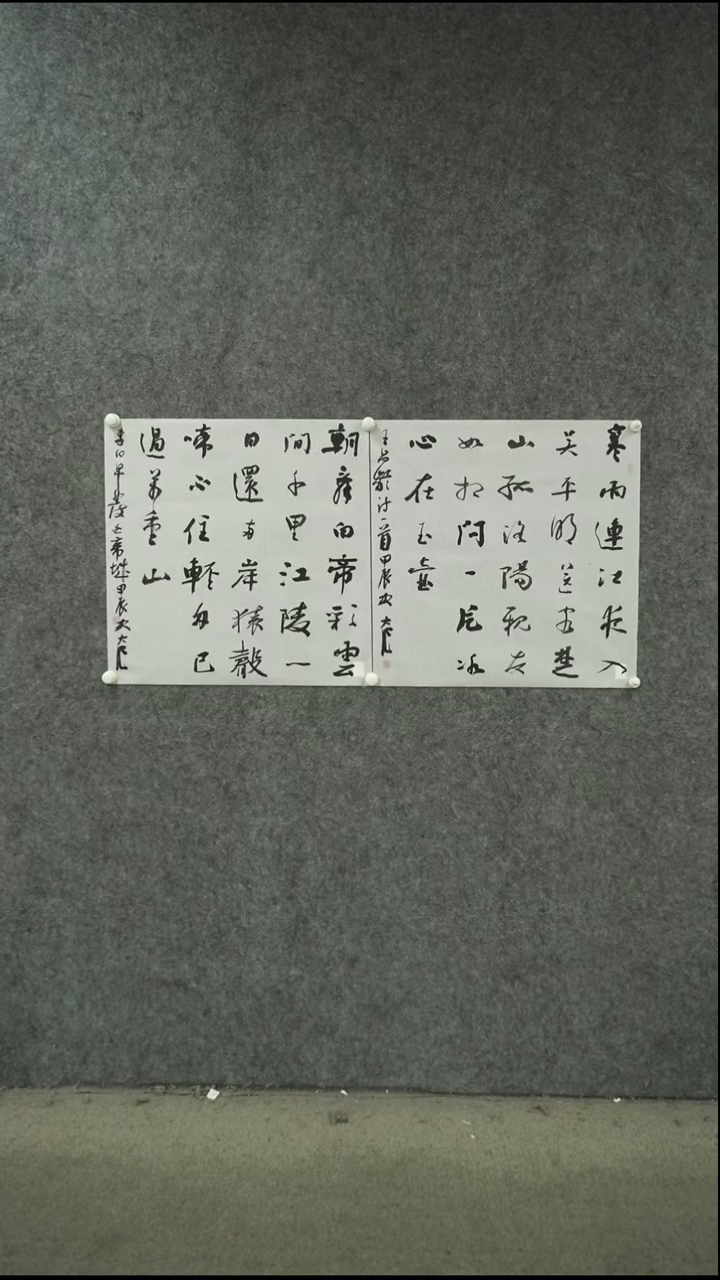 寒雨連江夜入
吴平明送客楚
山孤洛陽親友
如相問一片冰
心在玉壺
王昌齡诗一首甲辰秋
朝辞白帝彩雲
間千里江陵一
日還两岸猿聲
啼不住輕舟已
過万重山
李白早發白帝城甲辰秋